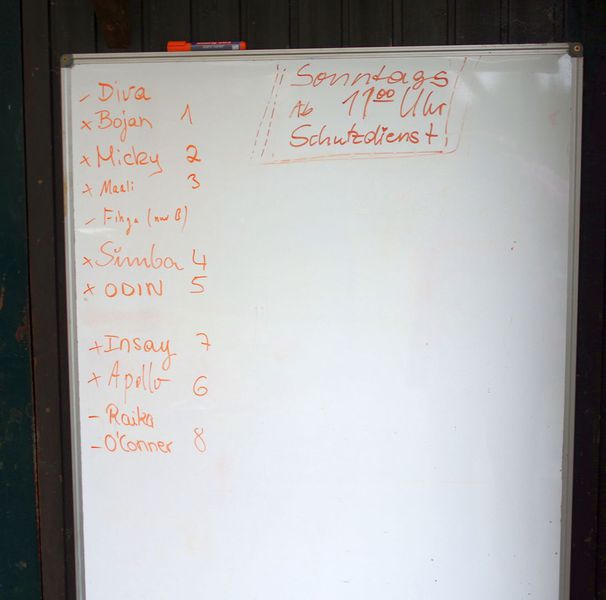 Sonntags
Ab 11 00 Uhr
Schutzdienst
- Diva
x Bojan 1
x Micky 2
x Maali 3
- Finja (nur B)
x Simba 4
x ODIN 5
+ Insay 7
x Apollo 6
- Raika
- O'Conner 8